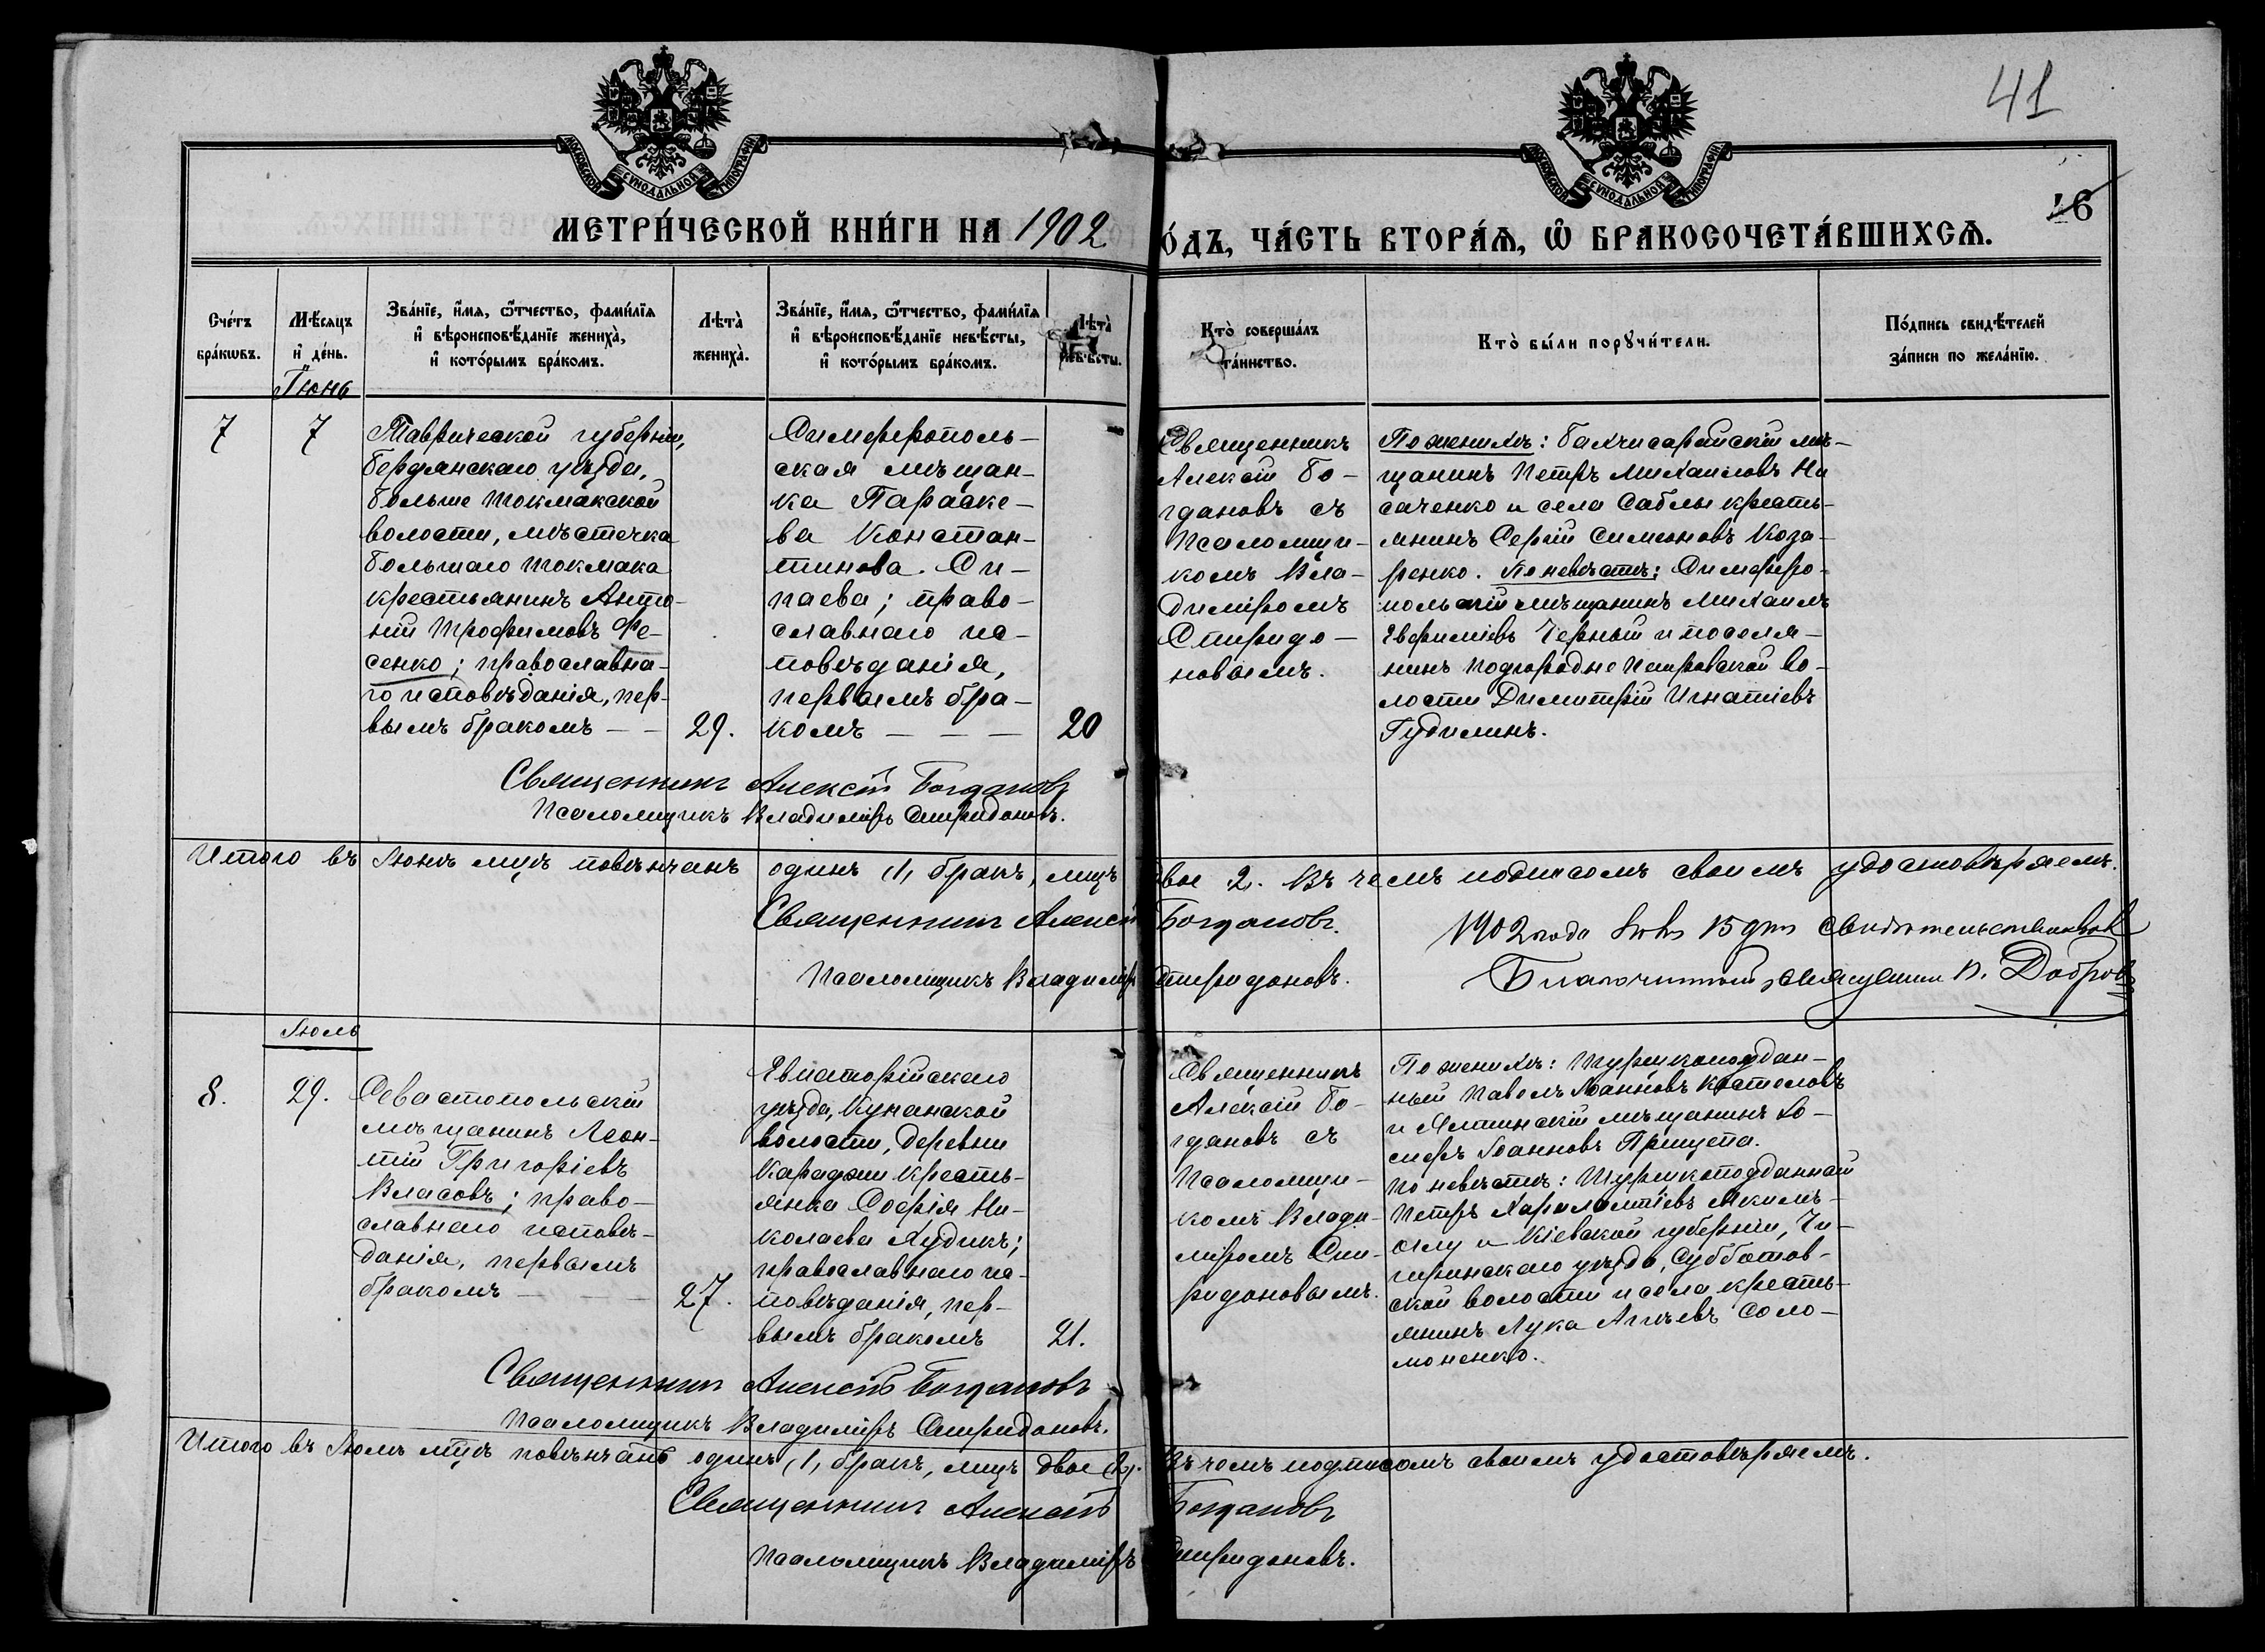 41
16
МОСКОВСКОЙ СѴНОДАЛЬНОЙ ТИПОГРАФІИ
МОСКОВСКОЙ СѴНОДАЛЬНОЙ ТИПОГРАФІИ
МЕТРИ́ЧЕСКОЙ КНИ́ГИ НА 1902 О́ДЪ, ЧА́СТЬ ВТОРА́Ѧ, Ѽ БРАКОСОЧЕТА́ВШИХСѦ.
Сче́тъ
бра́кѡвъ.
Мѣ́сѧцъ
и҆ де́нь.
Зва́нїе, и҆́мѧ, ѻ҆́тчество, фами́лїѧ
и҆ вѣроисповѣ́данїе жениха̀,
и҆ кото́рымъ бра́комъ.
Лѣта̀
жениха̀.
Зва́нїе, и҆́мѧ, ѻ҆́тчество, фами́лїѧ
и҆ вѣроисповѣ́данїе невѣ́сты,
и҆ кото́рымъ бра́комъ.
Лѣта̀
невѣ́сты.
Кто̀ соверша́лъ
та́инство.
Кто̀ бы́ли порꙋчи́тели.
По́дпись свидѣ́телей
за́писи по жела́нїю.
Іюнь
7
7
Таврической губерніи,
Бердянскаго уѣзда,
больше Токмакской
волости, мѣстечка
Большаго Токмака
крестьянинъ Анто-
ній Трофимовъ Фе-
сенко; православна-
го исповѣданія, пер-
вымъ бракомъ — —
29.
Симферополь-
ская мѣщан-
ка Параске-
ва Констан-
тинова. Си-
паева; право-
славнаго ис-
повѣданія,
первымъ бра-
комъ — — —
20
Священникъ
Алексій Бо-
гдановъ съ
Псаломщи-
комъ Вла-
диміромъ
Спиридо-
новымъ.
По женихѣ: Бахчисарайскій мѣ-
щанинъ Петръ Михаиловъ Но
саченко и села Саблы кресть-
янинъ Сергій Симеоновъ Коза-
ренко. По невѣстѣ: Симферо-
польскій мѣщанинъ Михаилъ
Евфиміевъ Черный и поселя-
нинъ Подгородне Петровской во-
лости Димитрій Игнатіевъ
Гудилинъ.
Священникъ Алексій Богдановъ
Псаломщикъ Владиміръ Спиридоновъ.
Итого въ Іюнѣ мцѣ повѣнчанъ одинъ (1) бракъ, лицъ двое 2. Въ чемъ подписомъ своимъ удостовѣряемъ.
Священникъ Алексій Богдановъ.
Псаломщикъ Владиміръ Спиридоновъ.
1902 года 15 дня свидѣтельствовалъ
Благочинный, священникъ Н. Добровъ
Іюль
8.
29.
Севастопольскій
мѣщанинъ Леон-
тій Григоріевъ
Власовъ; право-
славнаго исповѣ-
данія, первымъ
бракомъ — — —
27.
Евпаторійскаго
уѣзда, Кунанской
волости, деревни
Караджи кресть-
янка Софія Ни-
колаева Худикъ;
православнаго ис-
повѣданія, пер-
вымъ бракомъ
21.
Священникъ
Алексій Бо-
гдановъ съ
Псаломщи-
комъ Влади-
міромъ Спи-
ридоновымъ.
По женихѣ: Турецкоподдан-
ный Павелъ Іоанновъ Костоловъ
и Ялтинскій мѣщанинъ Іо-
сифъ Іоанновъ Прищепа.
По невѣстѣ: Турецкоподданный
Петръ Харалампіевъ Якимъ-
оглу и Кіевской губерніи, Чи-
гиринскаго уѣзда, Субботов-
ской волости и села кресть-
янинъ Лука Аггѣевъ Соло-
моненко.
Священникъ Алексій Богдановъ
Псаломщикъ Владиміръ Спиридоновъ.
Итого въ Іюлѣ мцѣ повѣнчанъ одинъ (1) бракъ, лицъ двое (2). Въ чемъ подписомъ своимъ удостовѣряемъ.
Священникъ Алексій Богдановъ
Псаломщикъ Владиміръ Спиридоновъ.